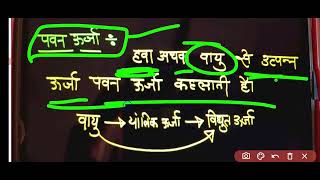 पवन ऊर्जा ÷
हवा अथवा वायु से उत्पन्न
ऊर्जा पवन ऊर्जा कहलाती है।
वायु → यांत्रिक ऊर्जा → विधुत ऊर्जा